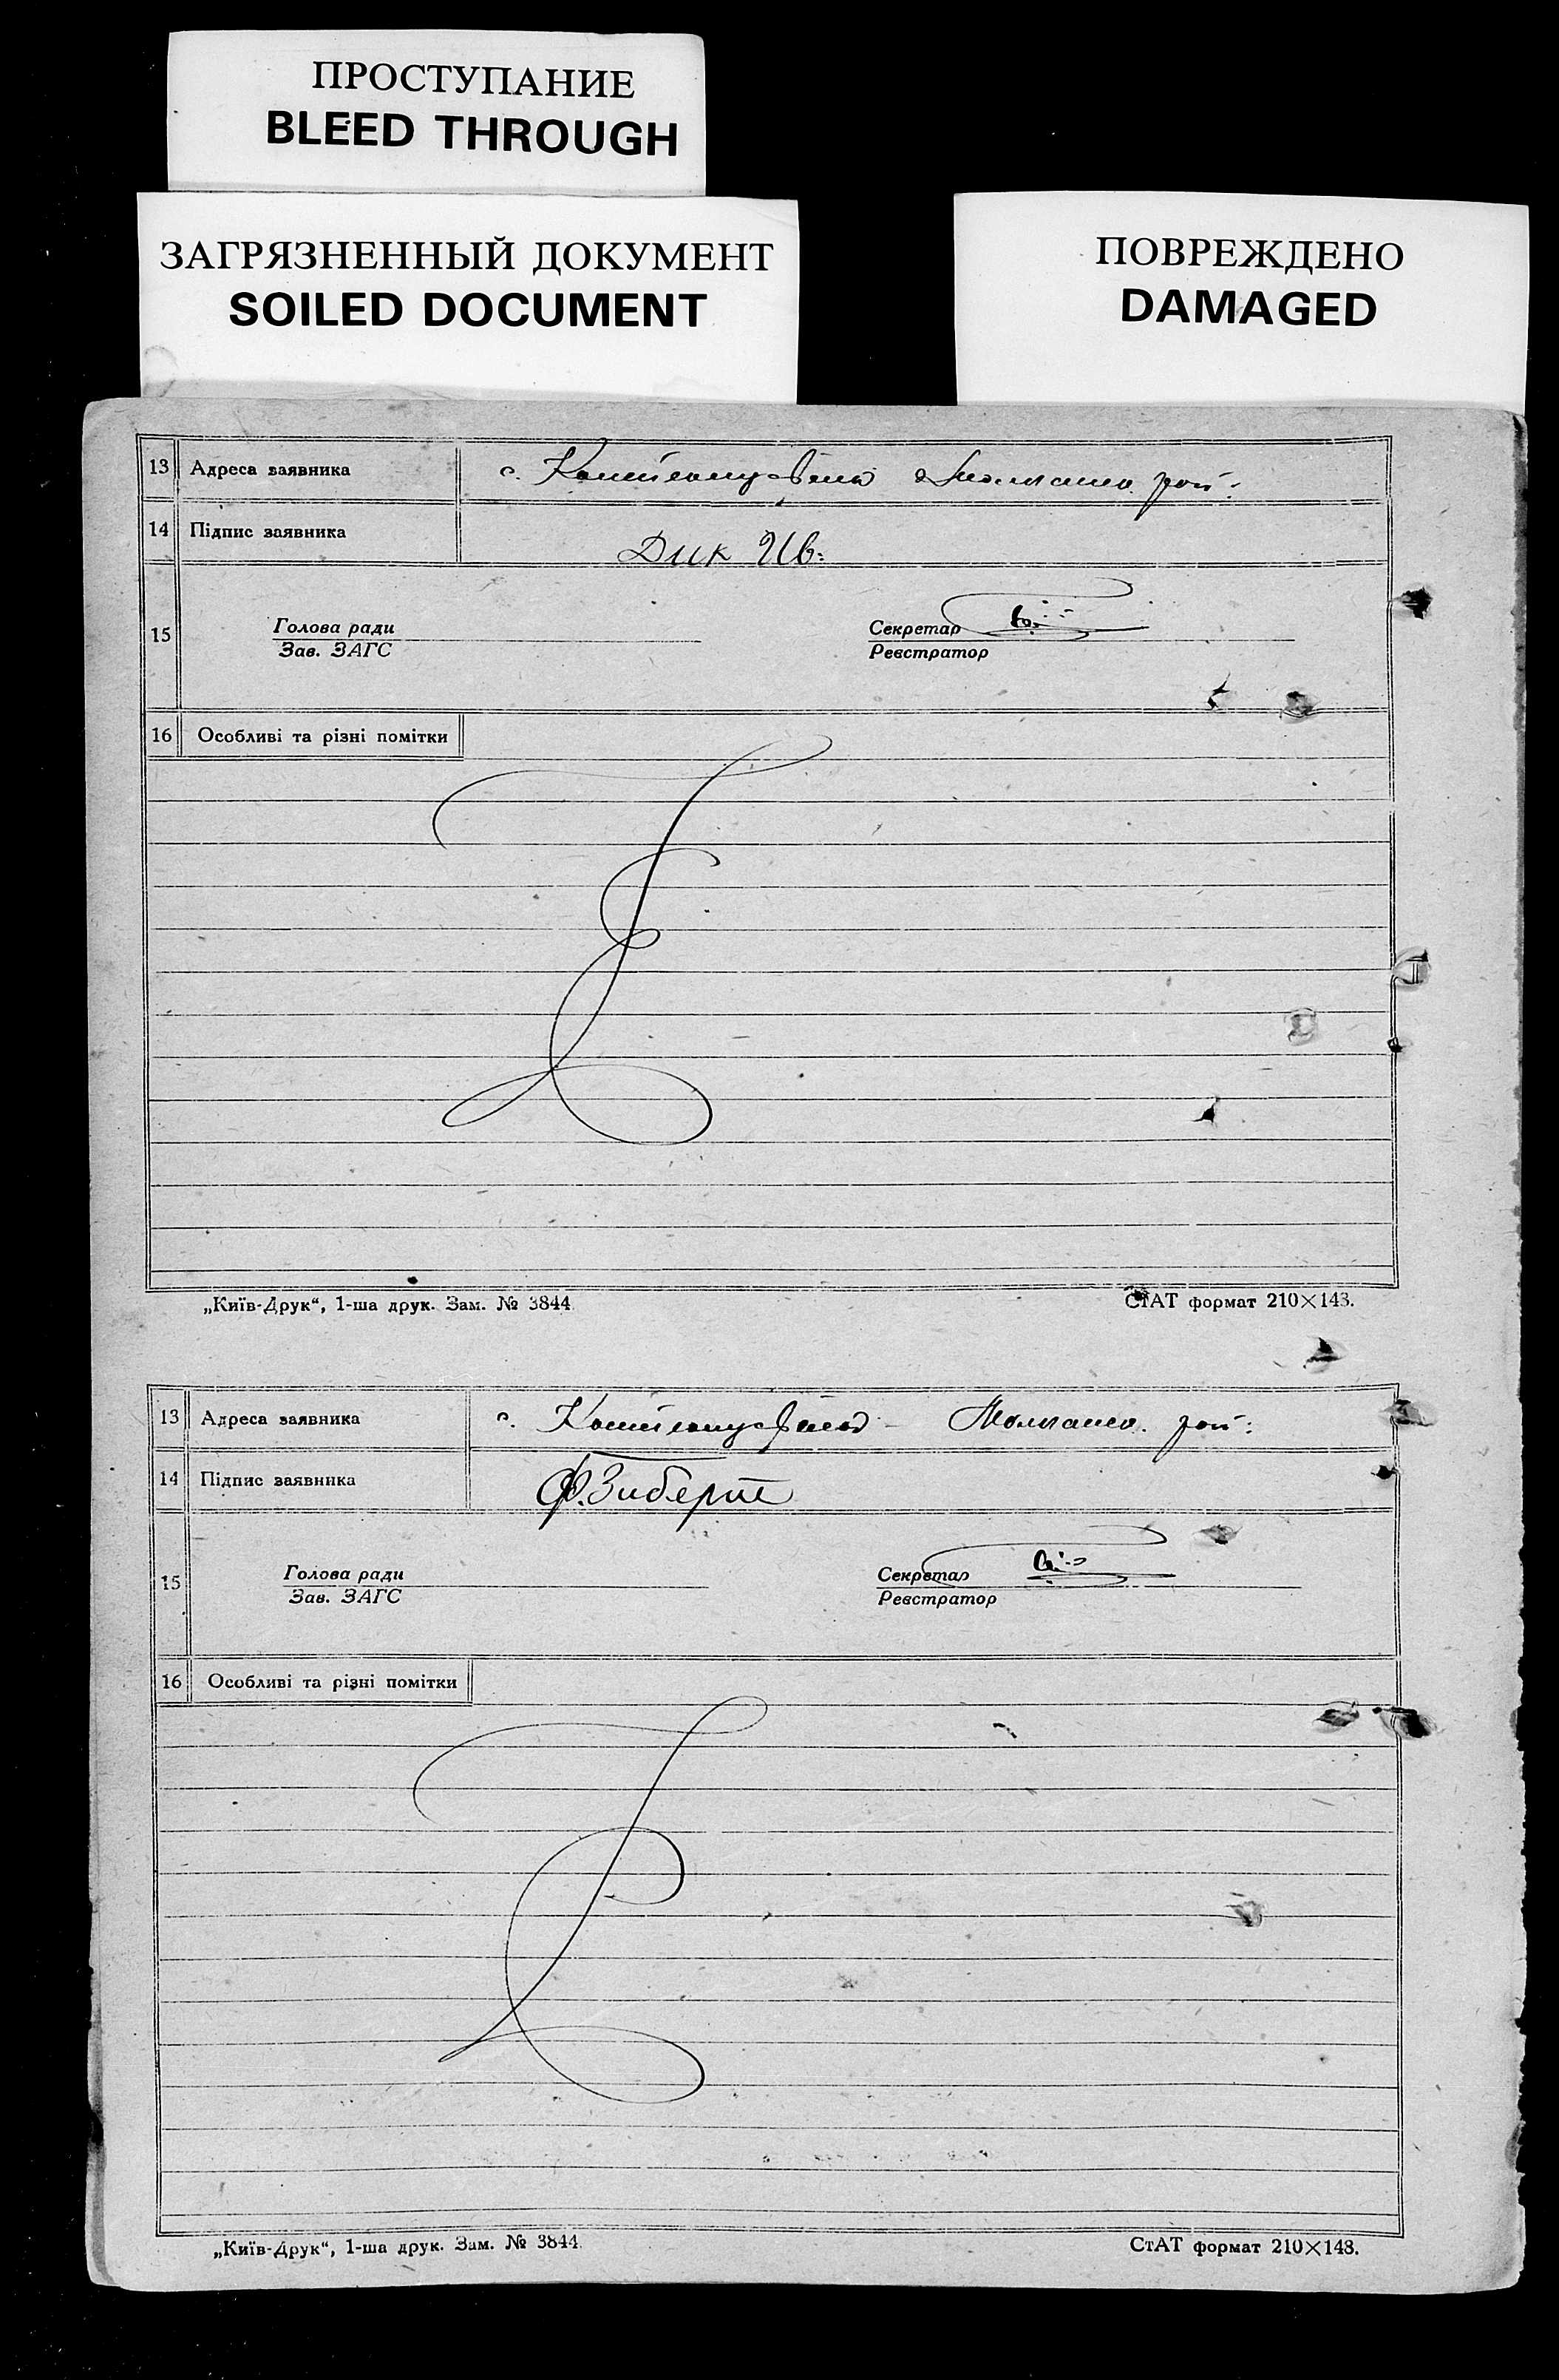 ПРОСТУПАНИЕ
BLEED THROUGH
ЗАГРЯЗНЕННЫЙ ДОКУМЕНТ
SOILED DOCUMENT
ПОВРЕЖДЕНО
DAMAGED
13 Адреса заявника с.
14 Підпис заявника Дик Ив.
15 Голова ради Секретар
Зав. ЗАГС Реєстратор
16 Особливі та різні помітки
„Київ-Друк“, 1-ша друк. Зам. № 3844. СтАТ формат 210×143.
13 Адреса заявника с.
14 Підпис заявника Ф. Зиберт
15 Голова ради Секретар
Зав. ЗАГС Реєстратор
16 Особливі та різні помітки
„Київ-Друк“, 1-ша друк. Зам. № 3844. СтАТ формат 210×148.